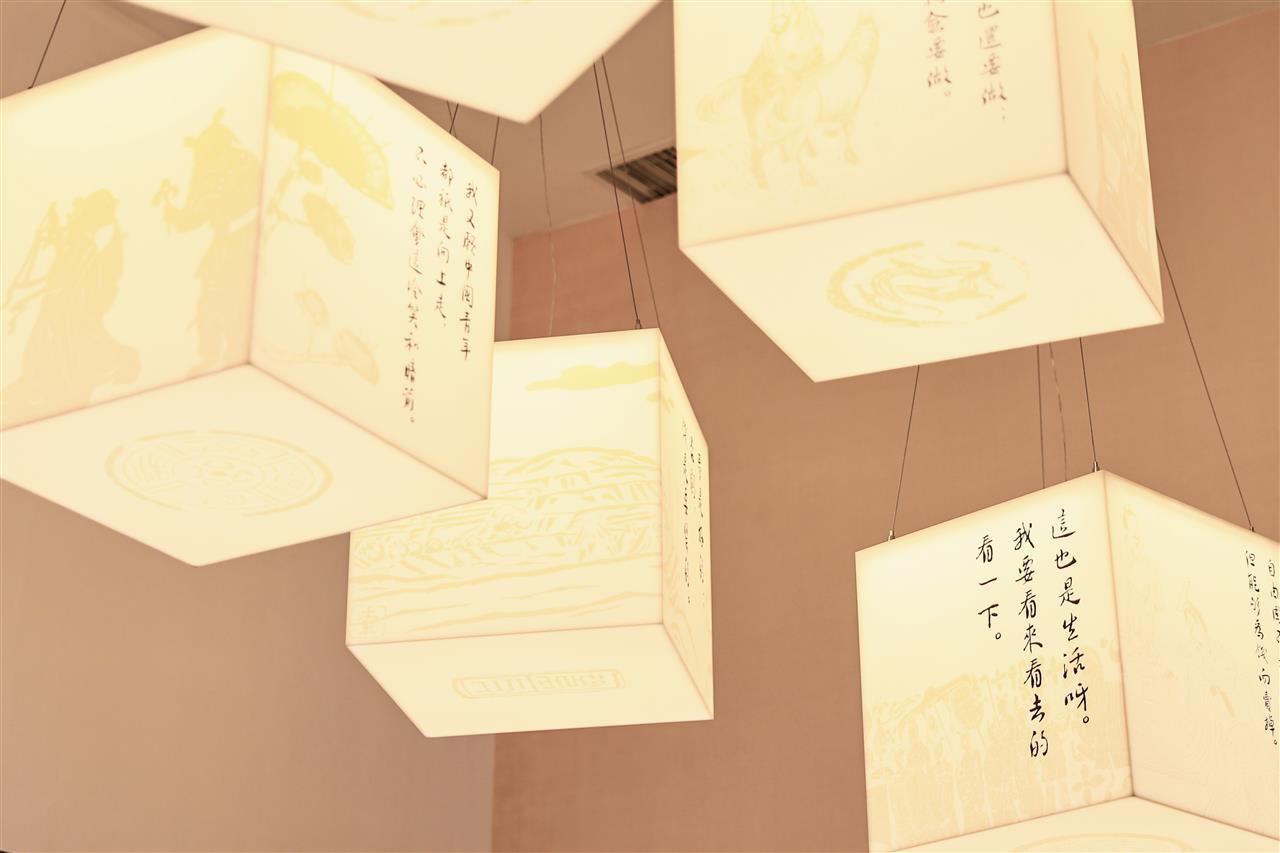 我又願中國青年
都祇是向上走，
不必理會這冷笑和暗箭。
也還要做；
愈要做。
這也是生活呀。
我要看來看去的
看一下。
自由固不
但能夠為錢而賣掉。